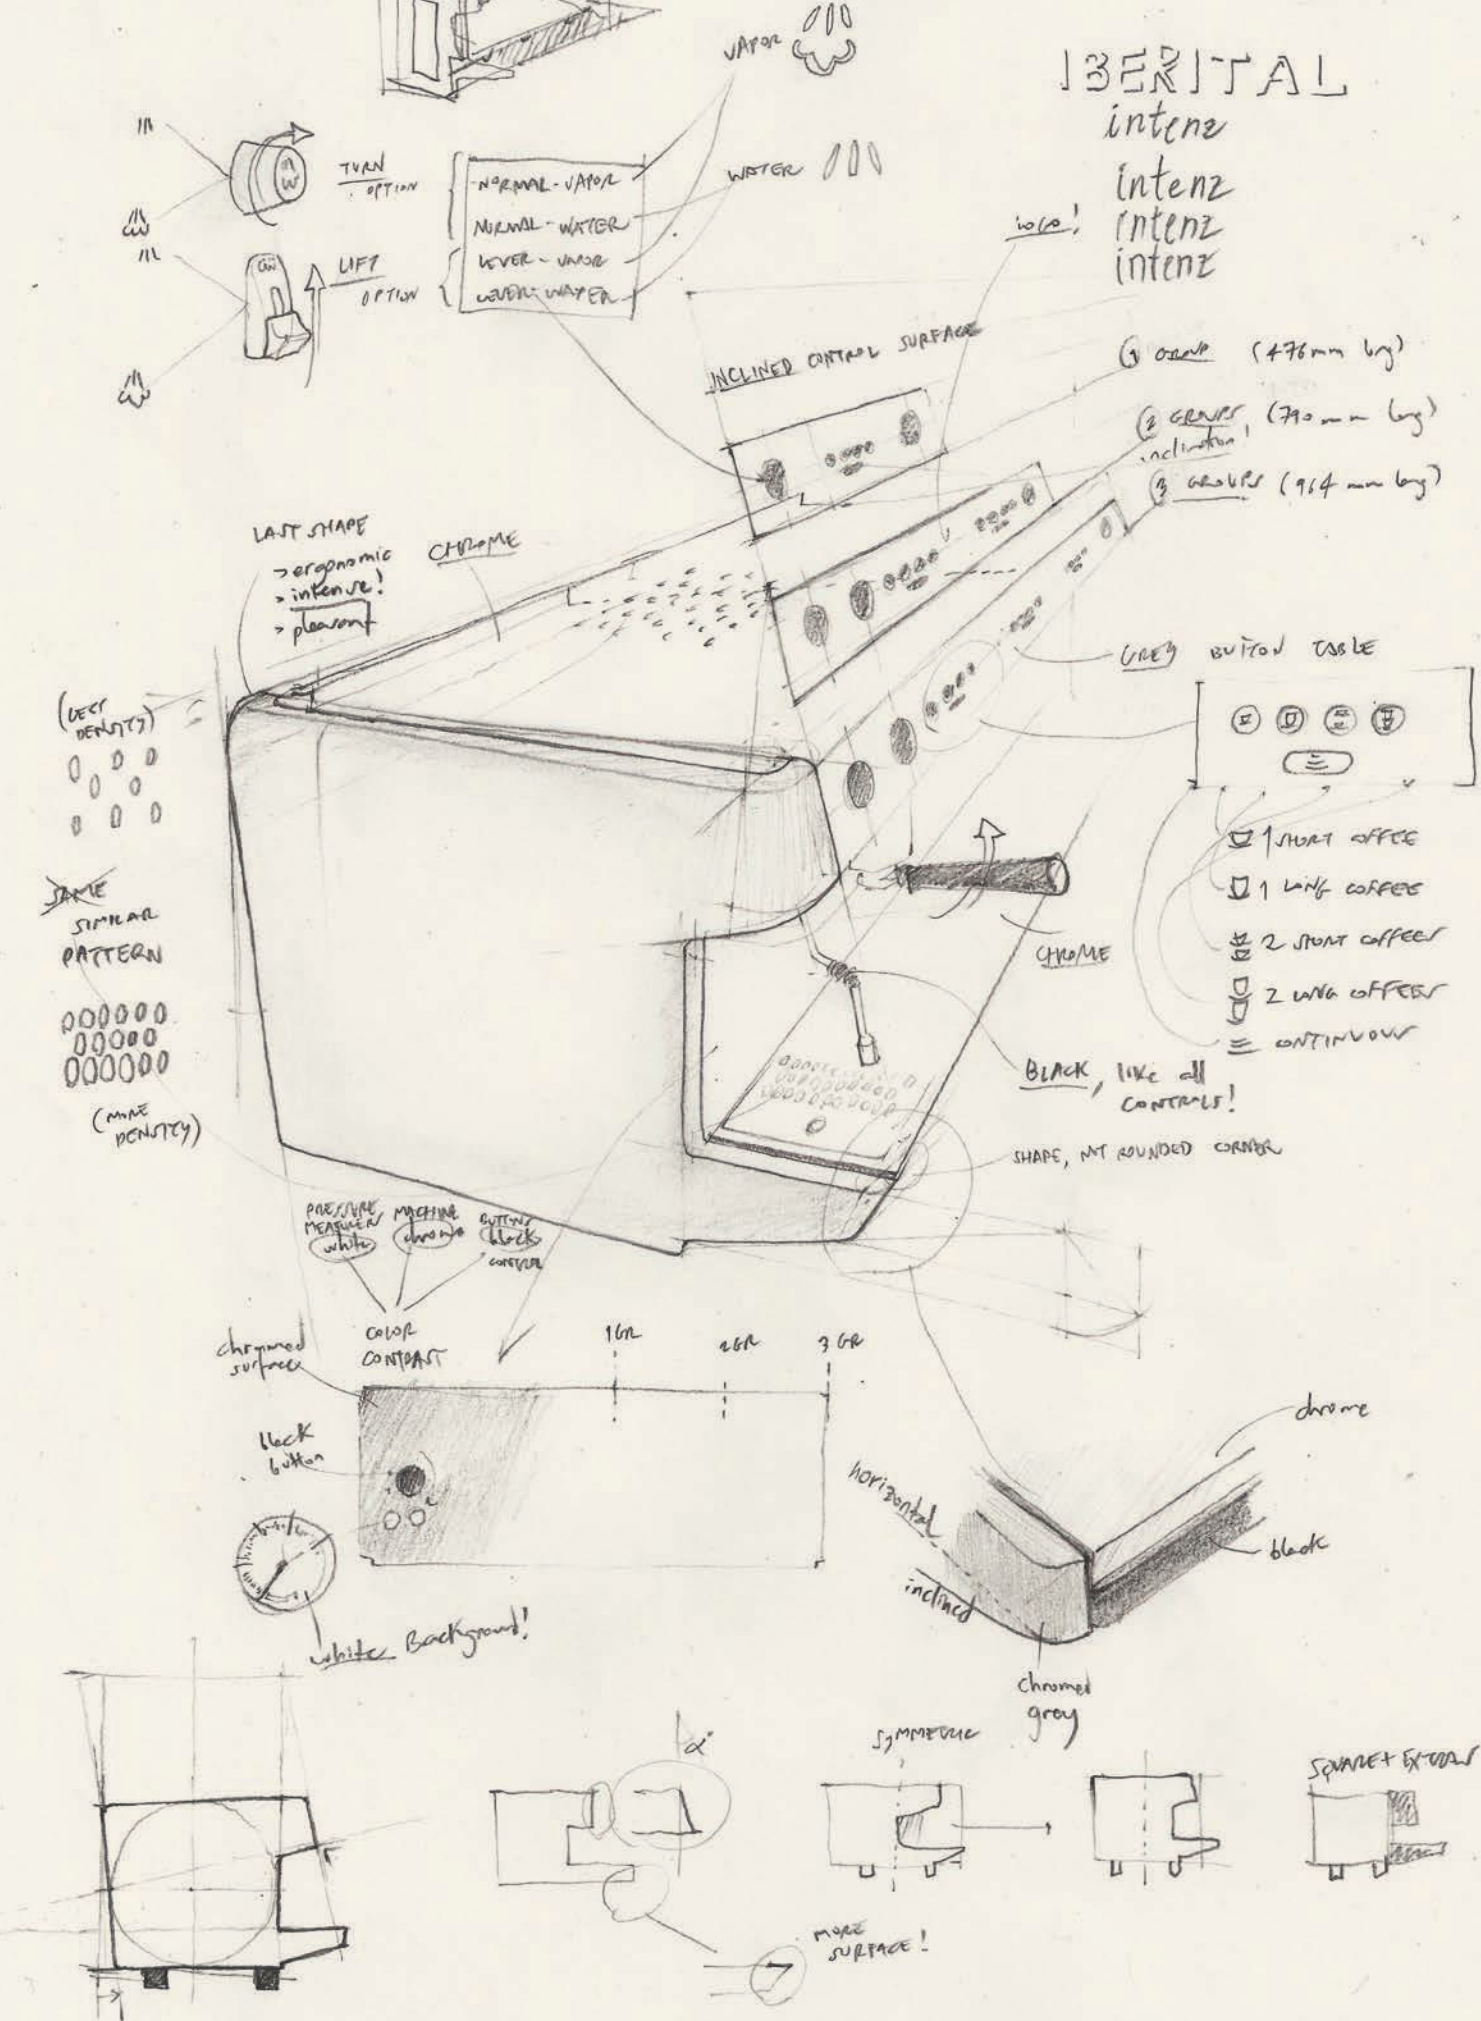 VAPOR
IBERITAL
intenz
intenz
intenz
intenz
logo!
TURN
OPTION
NORMAL-VAPOR
NORMAL-WATER
LEVER-VAPOR
LEVER-WATER
WATER
LIFT
OPTION
INCLINED CONTROL SURFACE
1 GROUP (476mm long)
2 GROUPS (790mm long)
inclination!
3 GROUPS (964 mm long)
LAST SHAPE
> ergonomic
> intense!
> pleasant
CHROME
GREY BUTTON TABLE
(LESS
DENSITY)
SAME
SIMILAR
PATTERN
(MORE
DENSITY)
1 SHORT COFFEE
1 LONG COFFEE
2 SHORT COFFEES
2 LONG COFFEES
CONTINUOUS
CHROME
BLACK, like all
CONTROLS!
SHAPE, NOT ROUNDED CORNER
PRESSURE
MEASURERS
white
MACHINE
chrome
BUTTONS
black
CONTROL
COLOR
CONTRAST
chromed
surface
1GR
2GR
3 GR
black
button
White Background!
chrome
horizontal
inclined
black
chromed
grey
α°
SYMMETRIC
SQUARE + EXTRAS
MORE
SURFACE!